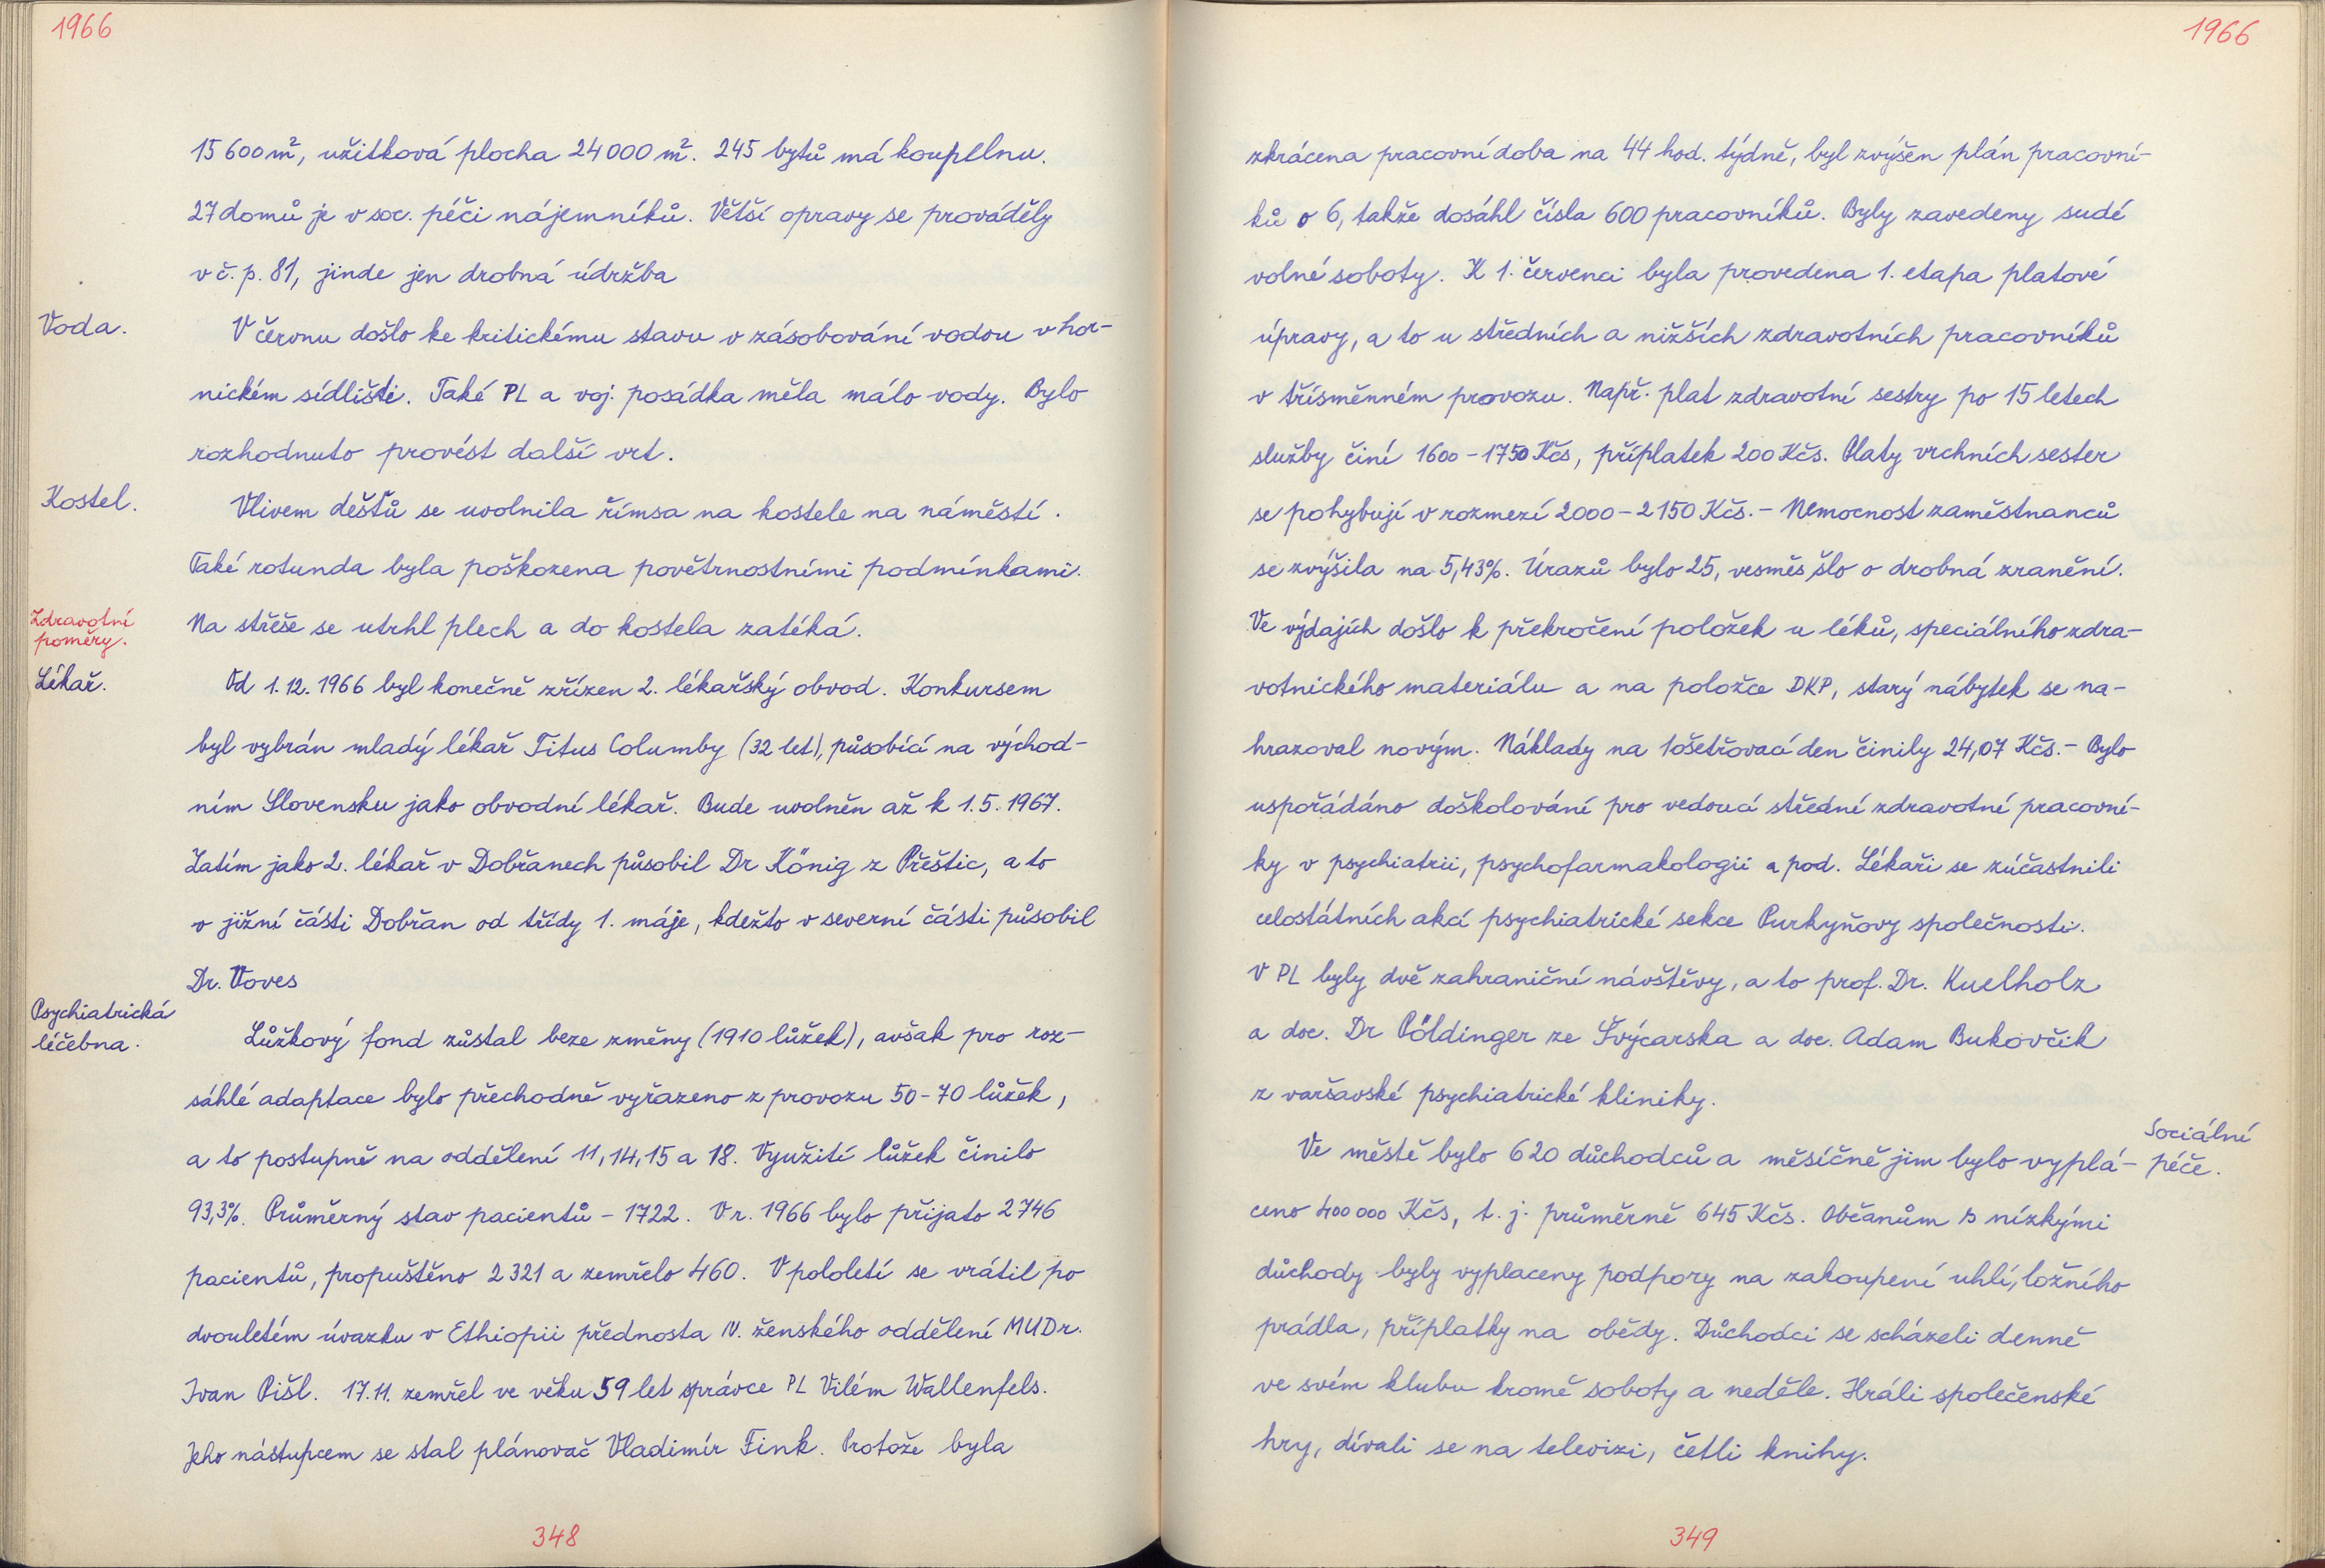 1966
15 600 m², užitková plocha 24 000 m². 245 bytů má koupelnu.
27 domů je v soc. péči nájemníků. Větší opravy se prováděly
v č. p. 81, jinde jen drobná údržba
Voda.
V červnu došlo ke kritickému stavu v zásobování vodou v hor-
nickém sídlišti. Také PL a voj. posádka měla málo vody. Bylo
rozhodnuto provést další vrt.
Kostel.
Vlivem dešťů se uvolnila římsa na kostele na náměstí.
Také rotunda byla poškozena povětrnostními podmínkami.
Na střeše se utrhl plech a do kostela zatéká.
Zdravotní
poměry.
Lékař.
Od 1. 12. 1966 byl konečně zřízen 2. lékařský obvod. Konkursem
byl vybrán mladý lékař Titus Columby (32 let), působící na východ-
ním Slovensku jako obvodní lékař. Bude uvolněn až k 1. 5. 1967.
Zatím jako 2. lékař v Dobřanech působil Dr König z Přeštic, a to
v jižní části Dobřan od třídy 1. máje, kdežto v severní části působil
Dr. Voves
Psychiatrická
léčebna.
Lůžkový fond zůstal beze změny (1910 lůžek), avšak pro roz-
sáhlé adaptace bylo přechodně vyřazeno z provozu 50-70 lůžek,
a to postupně na oddělení 11, 14, 15 a 18. Využití lůžek činilo
93,3%. Průměrný stav pacientů - 1722. V r. 1966 bylo přijato 2746
pacientů, propuštěno 2321 a zemřelo 460. V pololetí se vrátil po
dvouletém úvazku v Ethiopii přednosta IV. ženského oddělení MUDr.
Ivan Pišl. 17. 11. zemřel ve věku 59 let správce PL Vilém Wallenfels.
Jeho nástupcem se stal plánovač Vladimír Fink. Protože byla
348
1966
zkrácena pracovní doba na 44 hod. týdně, byl zvýšen plán pracovní-
ků o 6, takže dosáhl čísla 600 pracovníků. Byly zavedeny sudé
volné soboty. K 1. červenci byla provedena 1. etapa platové
úpravy, a to u středních a nižších zdravotních pracovníků
v třísměnném provozu. Např. plat zdravotní sestry po 15 letech
služby činí 1600 - 1750 Kčs, příplatek 200 Kčs. Platy vrchních sester
se pohybují v rozmezí 2000 - 2150 Kčs. - Nemocnost zaměstnanců
se zvýšila na 5,43%. Úrazů bylo 25, vesměs šlo o drobná zranění.
Ve výdajích došlo k překročení položek u léků, speciálního zdra-
votnického materiálu a na položce DKP, starý nábytek se na-
hrazoval novým. Náklady na 1 ošetřovací den činily 24,07 Kčs. - Bylo
uspořádáno doškolování pro vedoucí střední zdravotní pracovní-
ky v psychiatrii, psychofarmakologii a pod. Lékaři se zúčastnili
celostátních akcí psychiatrické sekce Purkyňovy společnosti.
V PL byly dvě zahraniční návštěvy, a to prof. Dr. Kuelholz
a doc. Dr Pöldinger ze Švýcarska a doc. Adam Bukovčik
z varšavské psychiatrické kliniky.
Sociální
péče.
Ve městě bylo 620 důchodců a měsíčně jim bylo vyplá-
ceno 400 000 Kčs, t. j. průměrně 645 Kčs. Občanům s nízkými
důchody byly vyplaceny podpory na zakoupení uhlí, ložního
prádla, příplatky na obědy. Důchodci se scházeli denně
ve svém klubu kromě soboty a neděle. Hráli společenské
hry, dívali se na televizi, četli knihy.
349